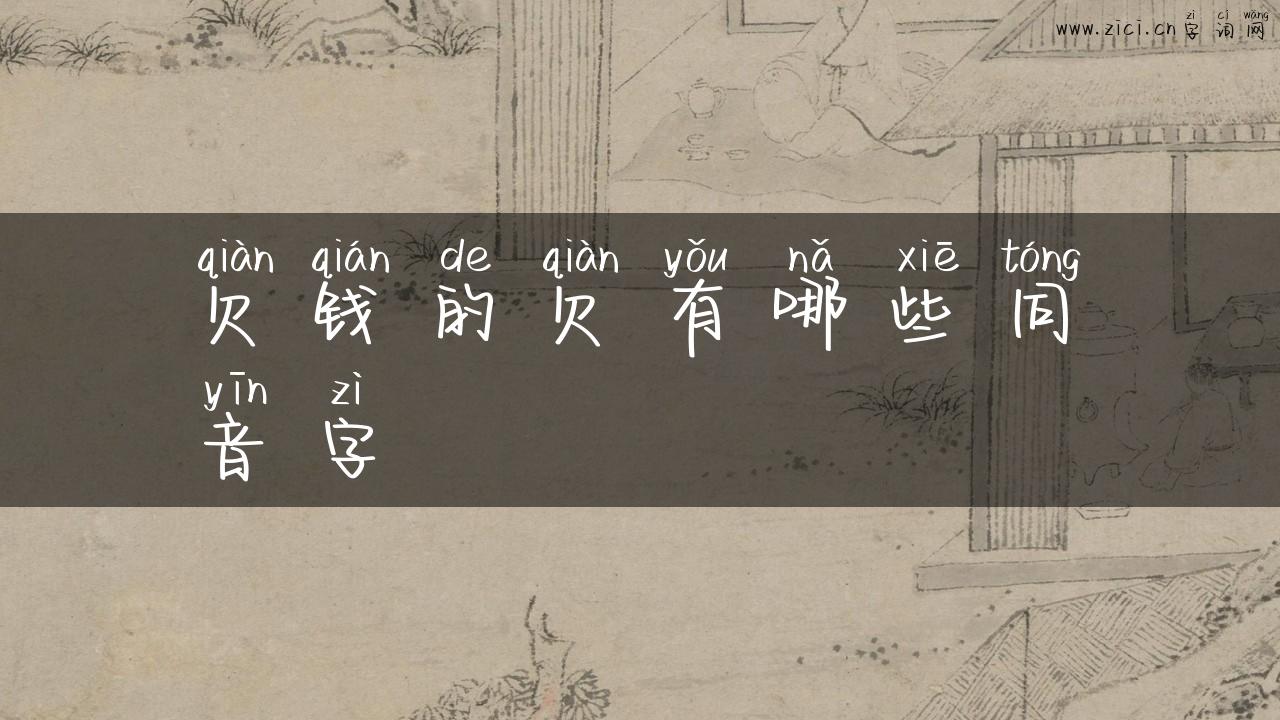 zì cí wǎng
www.zici.cn 字词网
qiàn qián de qiàn yǒu nǎ xiē tóng
欠钱的欠有哪些同
yīn zì
音字